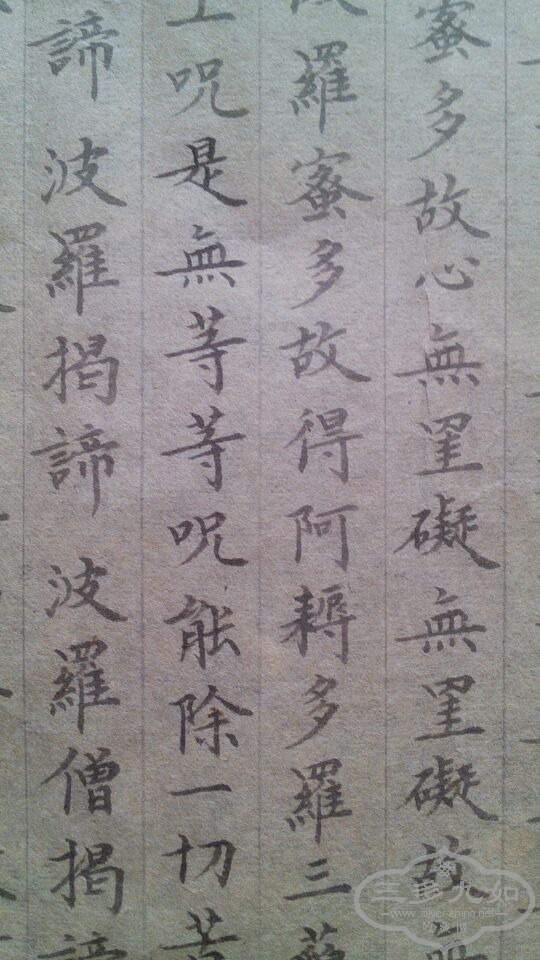 蜜多故心無罣礙無罣礙故
羅蜜多故得阿耨多羅三藐
上呪是無等等呪能除一切苦
諦 波羅揭諦 波羅僧揭諦
三多九如